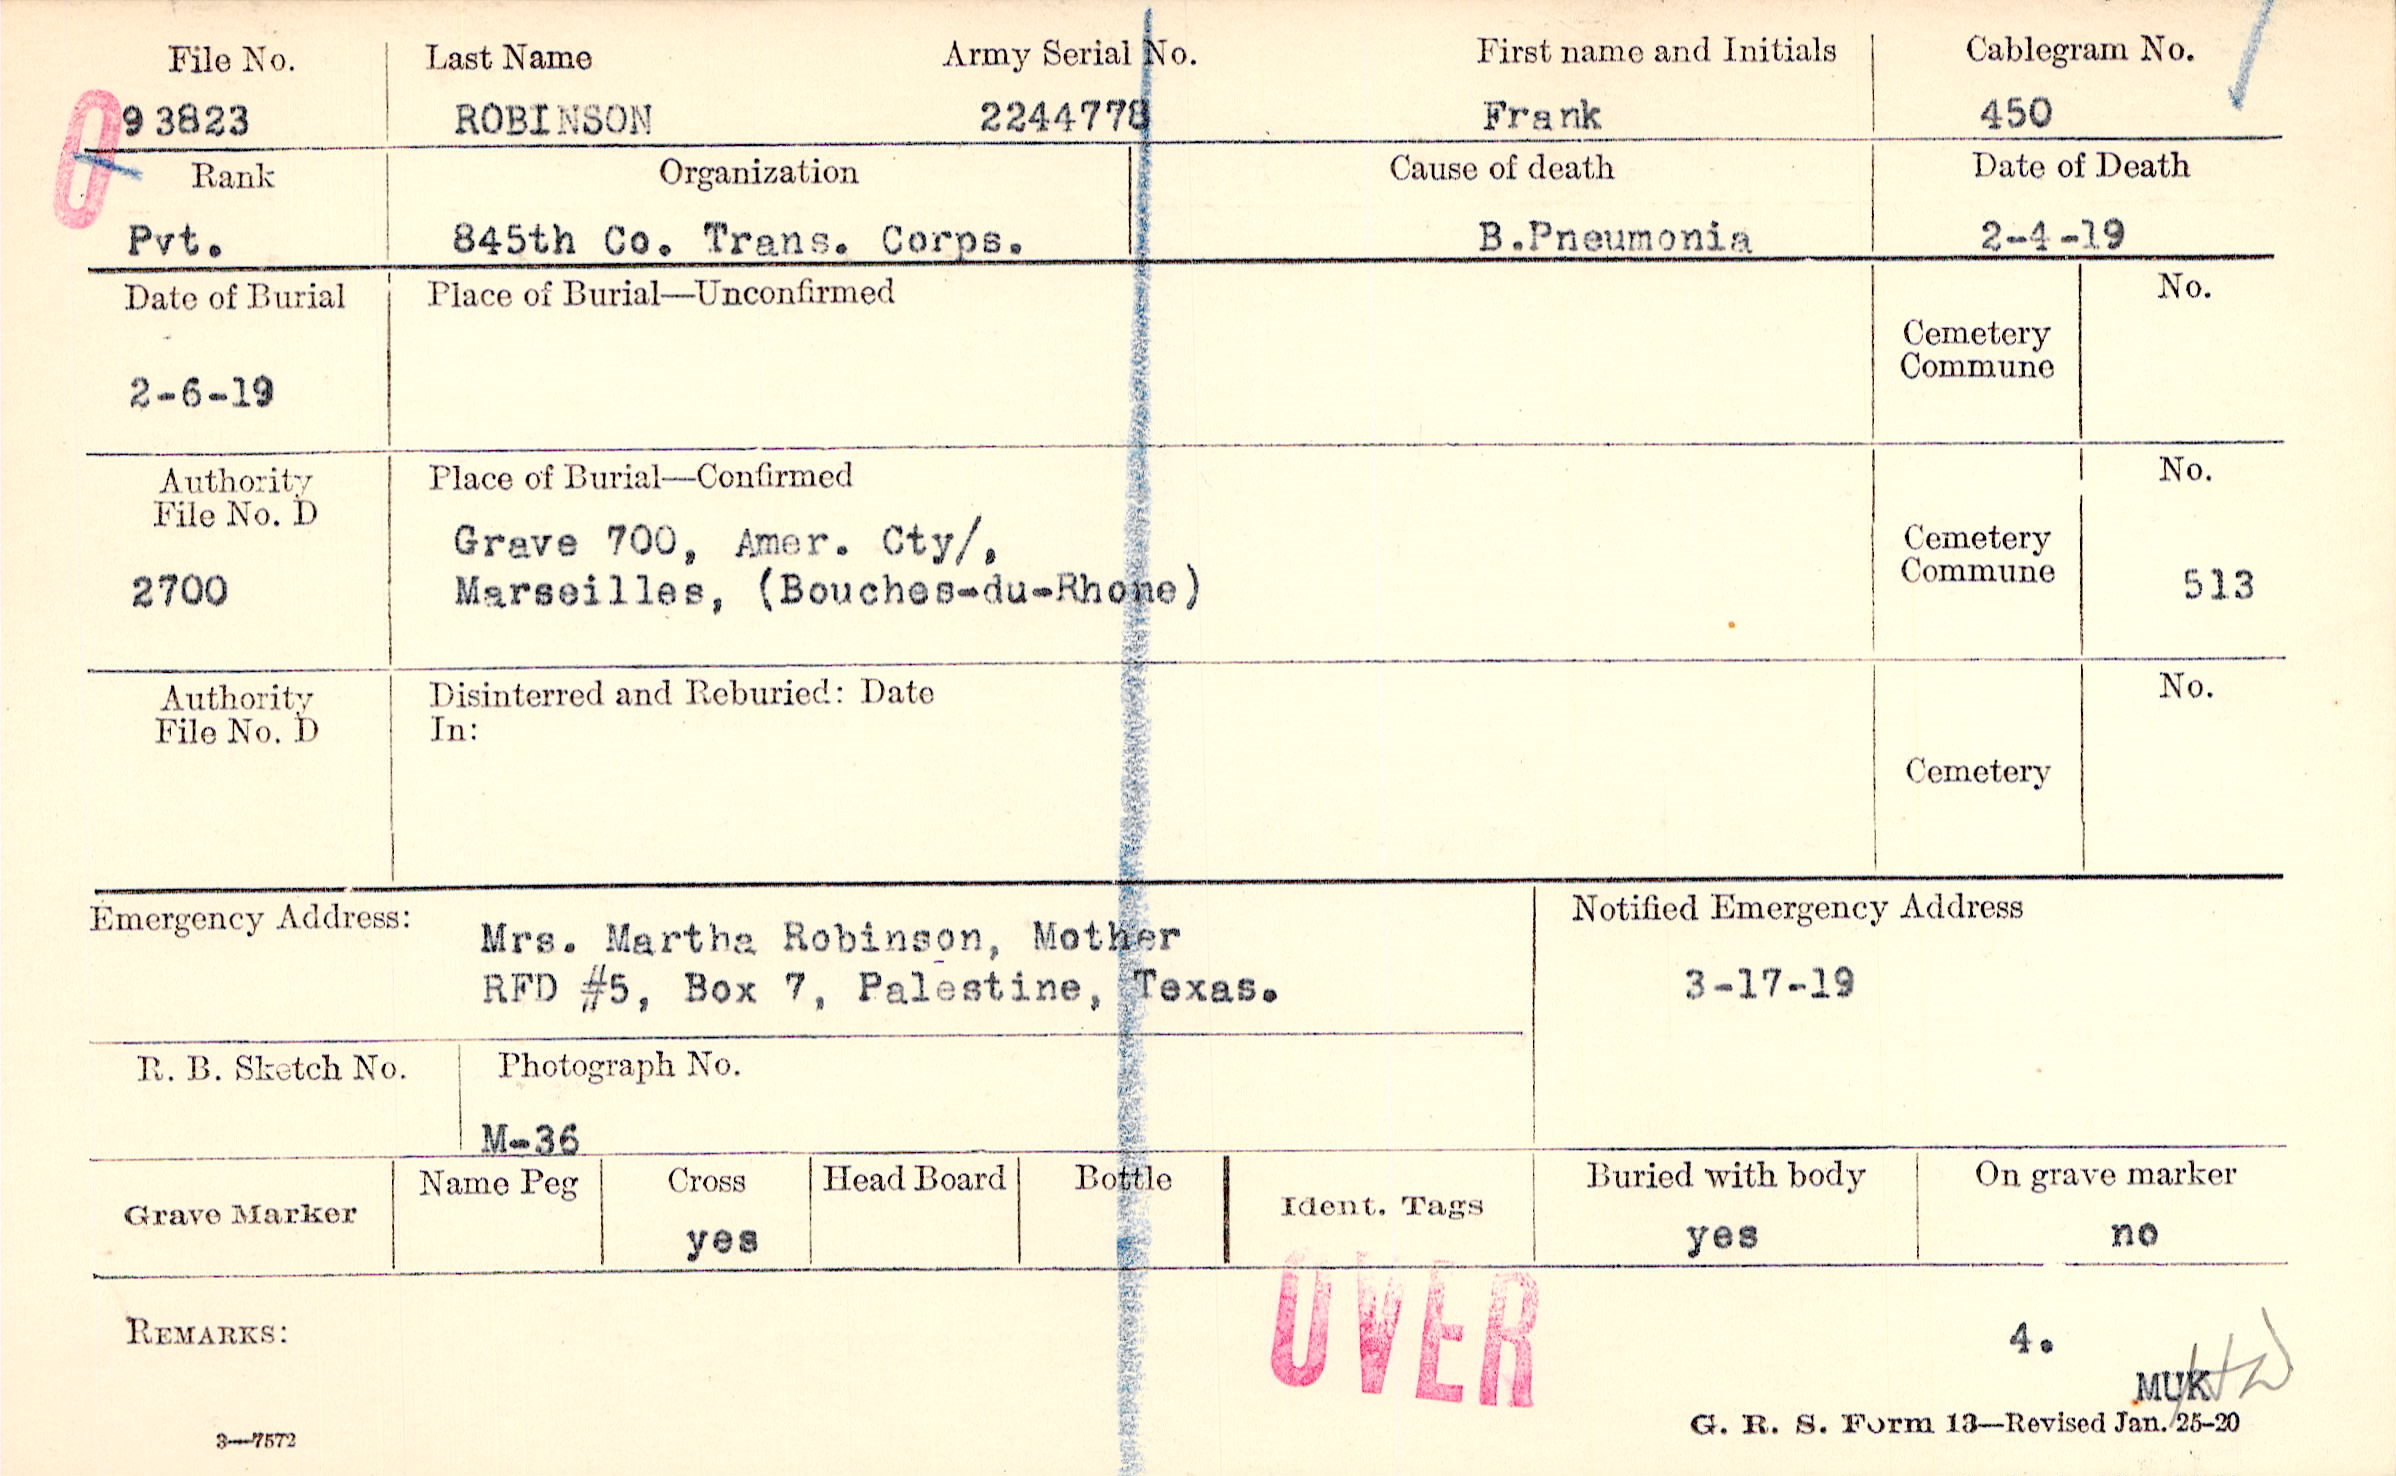 File No. Last Name Army Serial No. First name and Initials Cablegram No.
93823 ROBINSON 2244778 Frank 450
Rank Organization Cause of death Date of Death
Pvt. 845th Co. Trans. Corps. B.Pneumonia 2-4-19
Date of Burial Place of Burial—Unconfirmed No.
Cemetery
Commune
2-6-19
Authority Place of Burial—Confirmed No.
File No. D
Grave 700, Amer. Cty/, Cemetery
2700 Marseilles, (Bouches-du-Rhone) Commune 513
Authority Disinterred and Reburied: Date No.
File No. D In:
Cemetery
Emergency Address: Notified Emergency Address
Mrs. Martha Robinson, Mother
RFD #5, Box 7, Palestine, Texas. 3-17-19
R. B. Sketch No. Photograph No.
M-36
Grave Marker Name Peg Cross Head Board Bottle Ident. Tags Buried with body On grave marker
yes yes no
OVER
REMARKS: 4.
MUK
G. R. S. Form 13—Revised Jan. 25-20
3—7572